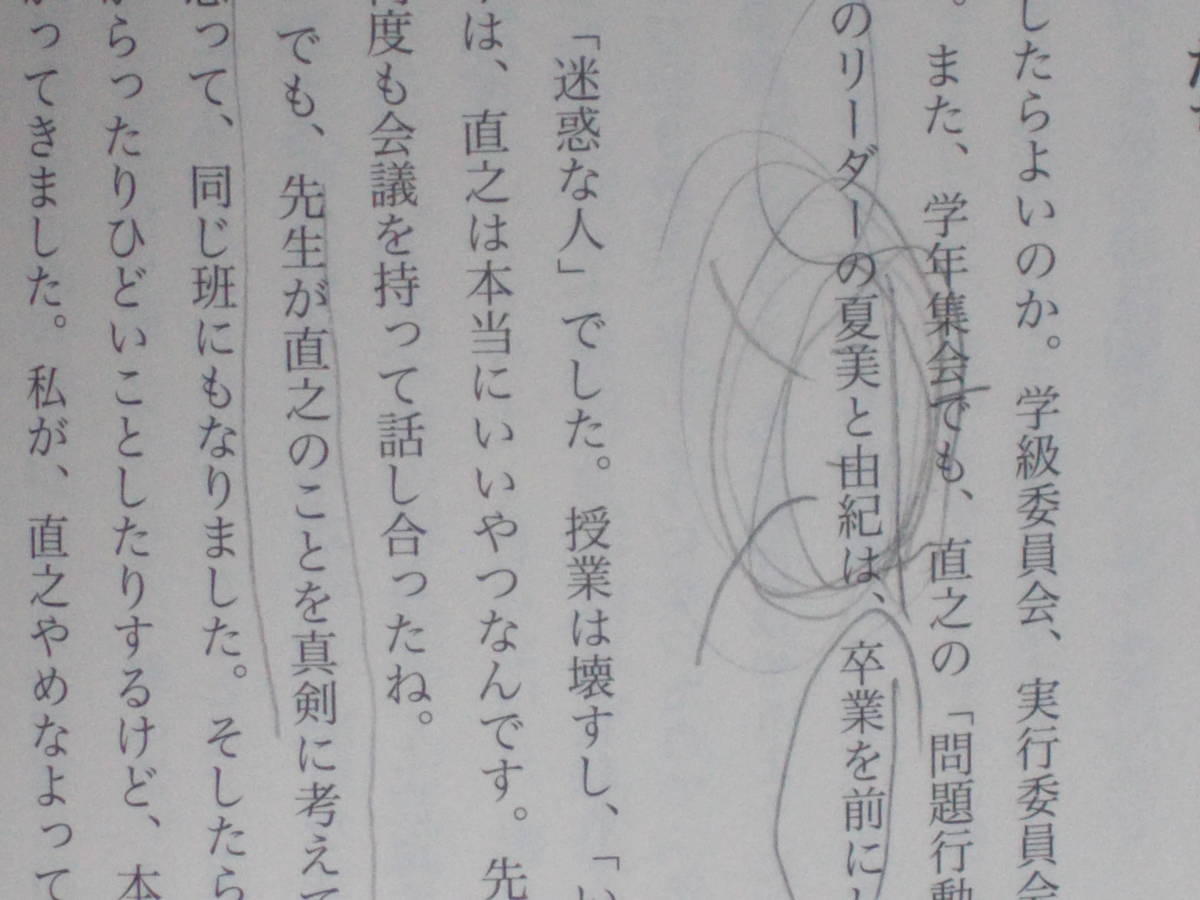 したらよいのか。学級委員会、実行委員会
。また、学年集会でも、直之の「問題行動
のリーダーの夏美と由紀は、卒業を前に
「迷惑な人」でした。授業は壊すし、「い
は、直之は本当にいいやつなんです。先
何度も会議を持って話し合ったね。
でも、先生が直之のことを真剣に考えて
思って、同じ班にもなりました。そしたら
からったりひどいことしたりするけど、本
がってきました。私が、直之やめなよって